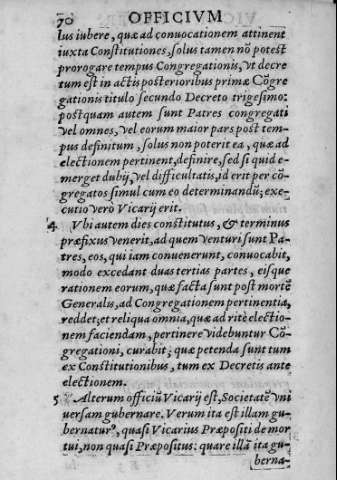 70 OFFICIVM
lus iubere, quæ ad conuocationem attinent
iuxta Constitutiones, solus tamen nõ potest
prorogare tempus Congregationis, vt decre
tum est in actis posterioribus primæ Cõgre
gationis titulo secundo Decreto trigesimo:
postquam autem sunt Patres congregati
vel omnes, vel eorum maior pars post tem-
pus definitum, solus non poterit ea, quæ ad
electionem pertinent, definire, sed si quid e-
merget dubij, vel difficultatis, id erit per cõ
gregatos simul cum eo determinandũ; exe-
cutio verò Vicarij erit.
4. Vbi autem dies constitutus, & terminus
præfixus venerit, ad quem venturi sunt Pa-
tres, eos, qui iam conuenerunt, conuocabit,
modo excedant duas tertias partes, eisque
rationem eorum, quæ facta sunt post mortẽ
Generalis, ad Congregationem pertinentia,
reddet; et reliqua omnia, quæ ad ritè electio-
nem faciendam, pertinere videbuntur Cõ-
gregationi, curabit; quæ petenda sunt tum
ex Constitutionibus, tum ex Decretis ante
electionem.
5. Alterum officiũ Vicarij est, Societatẽ vni
uersam gubernare. Verum ita est illam gu-
bernaturꝰ, quasi Vicarius Præpositi de mor
tui, non quasi Præpositus: quare illã ita gu-
berna-